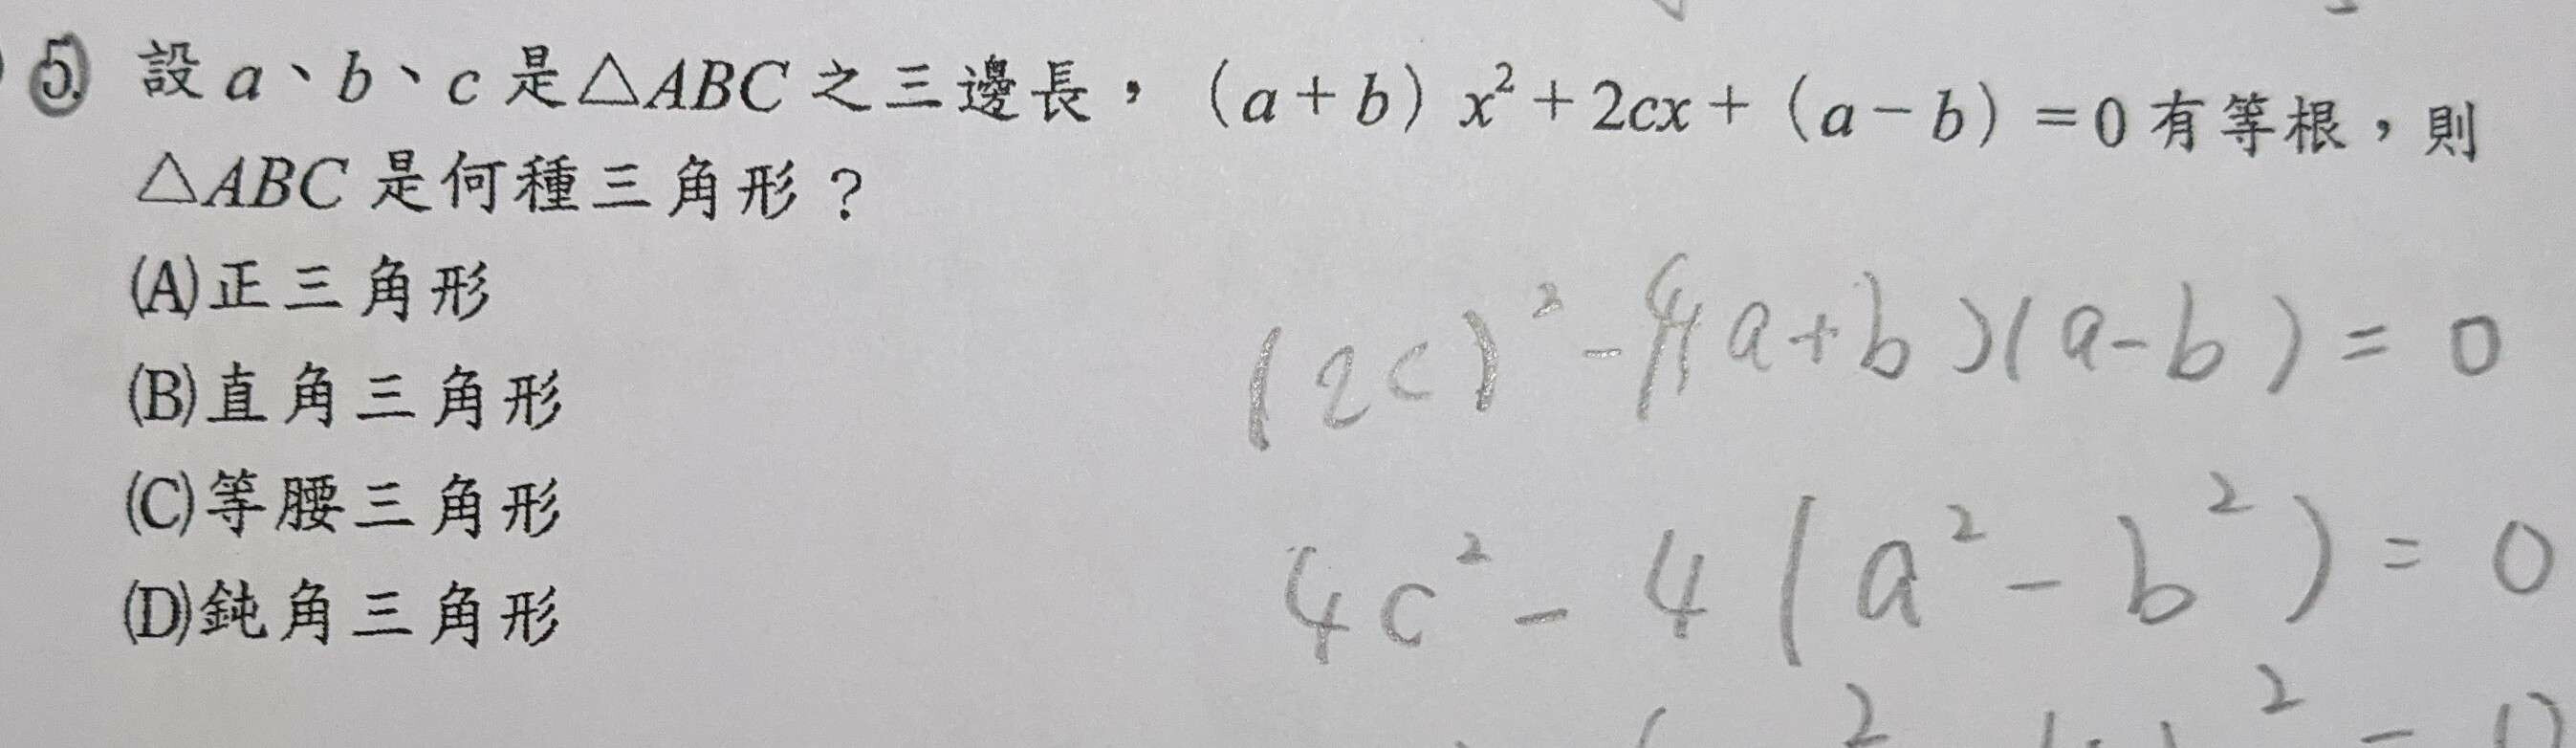 5. 設 a、b、c 是△ABC 之三邊長，(a+b) x²+2cx+(a-b)=0 有等根，則
△ABC 是何種三角形？
(A)正三角形
(B)直角三角形
(C)等腰三角形
(D)鈍角三角形
(2c)²-4(a+b)(a-b)=0
4c²-4(a²-b²)=0